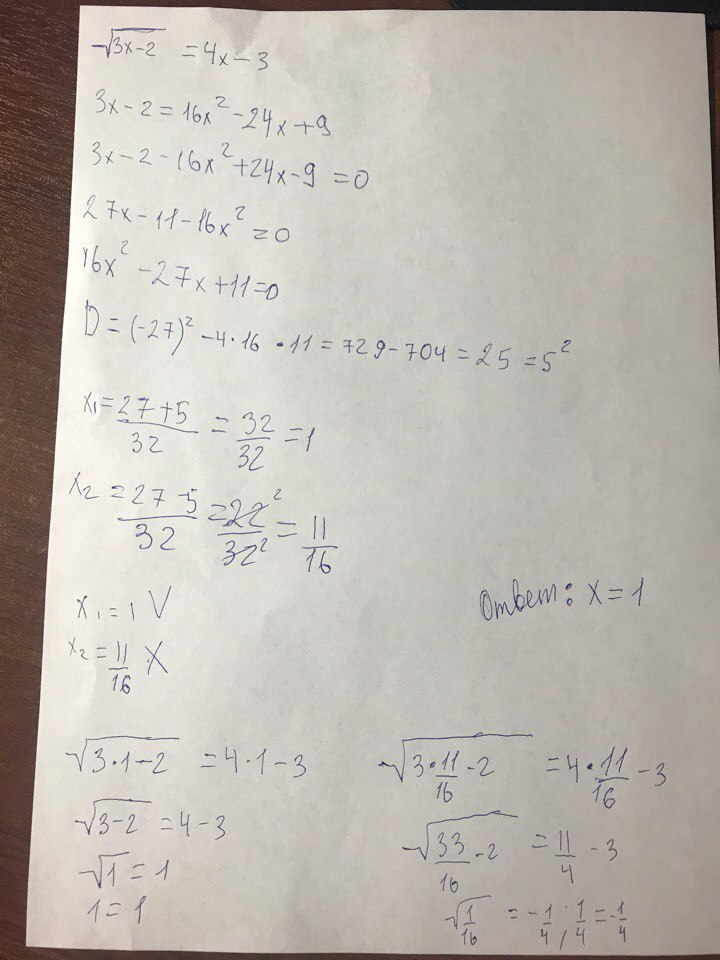 √3x-2 = 4x-3
3x-2 = 16x² - 24x + 9
3x-2-16x²+24x-9 = 0
27x-11-16x² = 0
16x² - 27x + 11 = 0
D = (-27)² - 4·16·11 = 729-704 = 25 = 5²
x₁ = 27+5/32 = 32/32 = 1
x₂ = 27-5/32 = 22²/32² = 11/16
x₁ = 1 V
x₂ = 11/16 X
Ответ: x = 1
√3·1-2 = 4·1-3
√3-2 = 4-3
√1 = 1
1 = 1
√3·11/16-2 = 4·11/16-3
√33/16-2 = 11/4-3
√1/16 = -1/4; 1/4 = -1/4